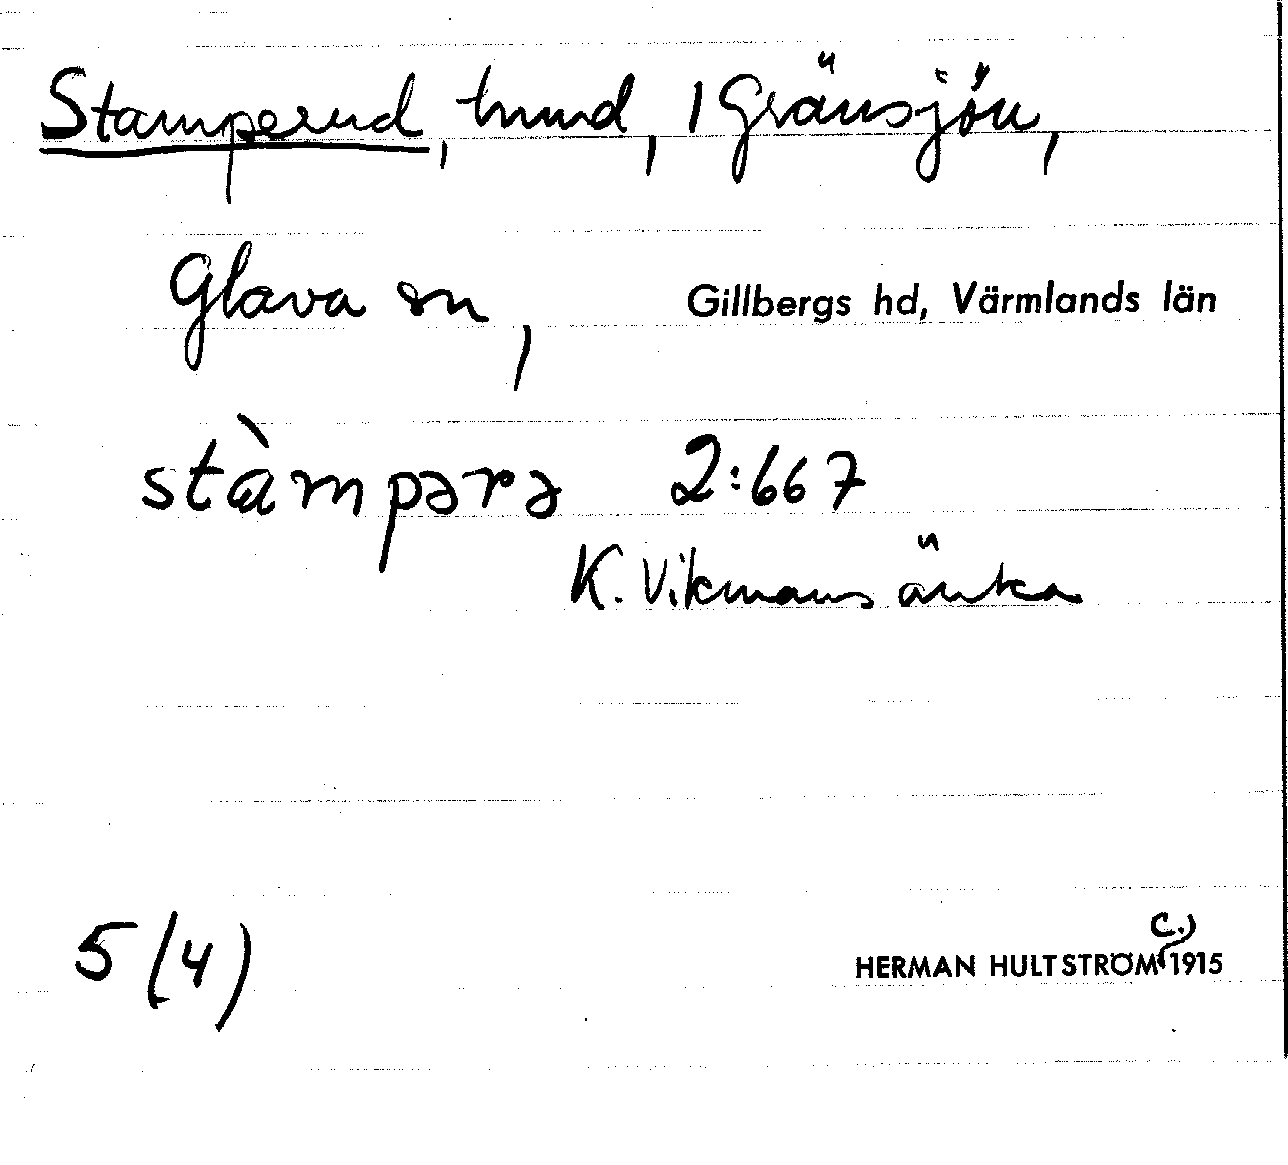 Stamperud, hmd, 1 Gränsjön,
Glava sn, Gillbergs hd, Värmlands län
stàmpərə 2:667
K. Vikmans änka
5 (4) HERMAN HULTSTRÖM c.) 1915